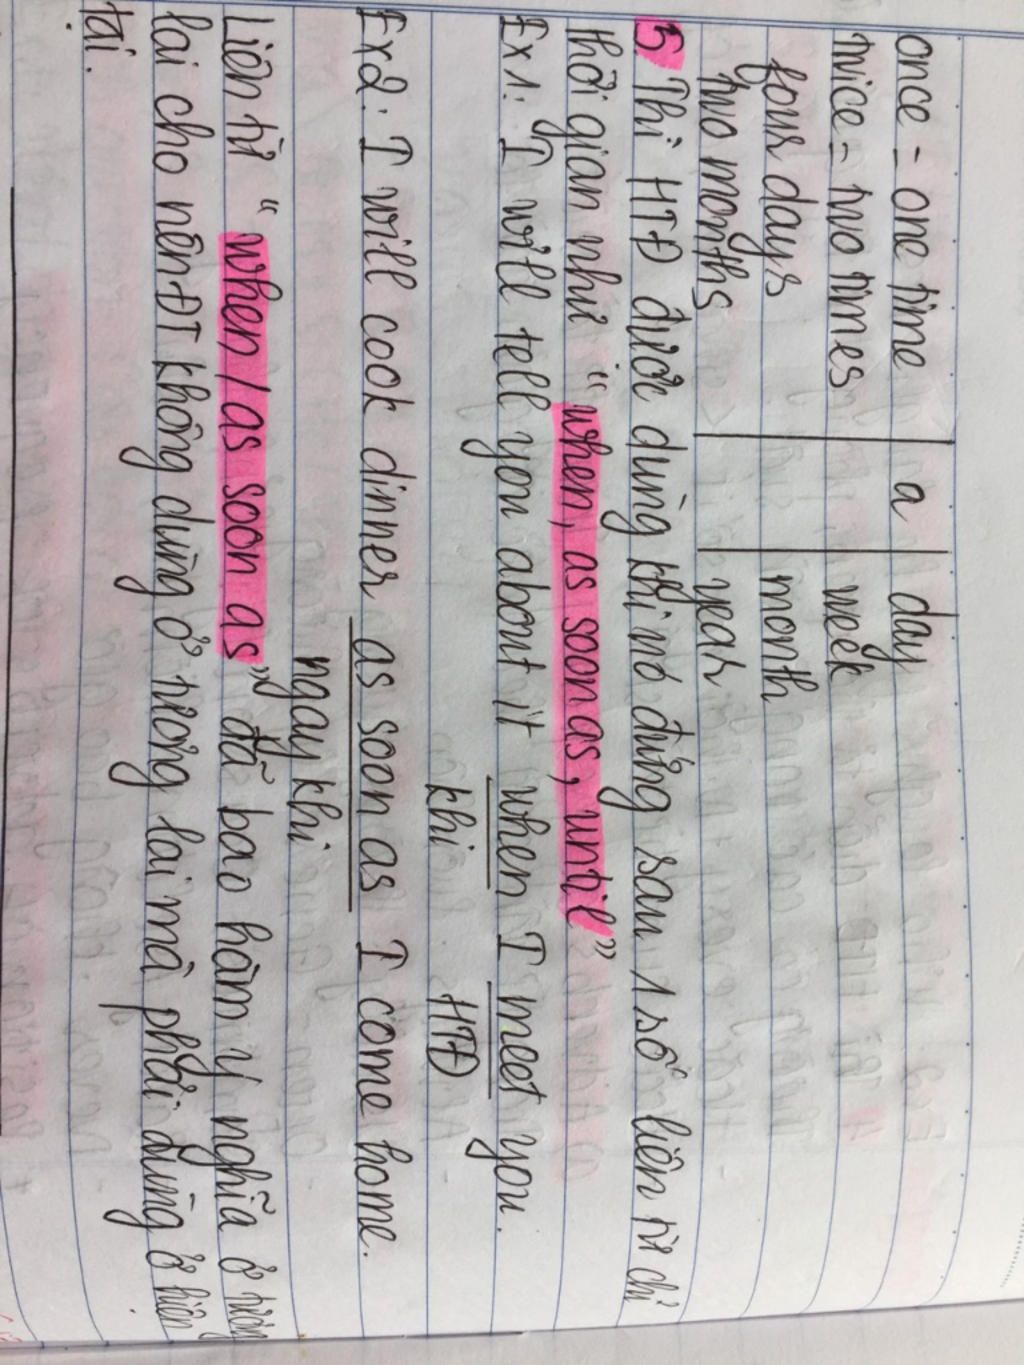 once = one time | a | day
twice = two times week
four days month
two months year
5. Thì HTĐ được dùng khi nó đứng sau 1 số liên từ chỉ
thời gian như "when, as soon as, until"
Ex1: I will tell you about it when I meet you.
khi HTĐ
Ex2: I will cook dinner as soon as I come home.
ngay khi
Liên từ "when / as soon as" đã bao hàm ý nghĩa ở tương
lai cho nên ĐT không dùng ở tương lai mà phải dùng ở hiện
tại.